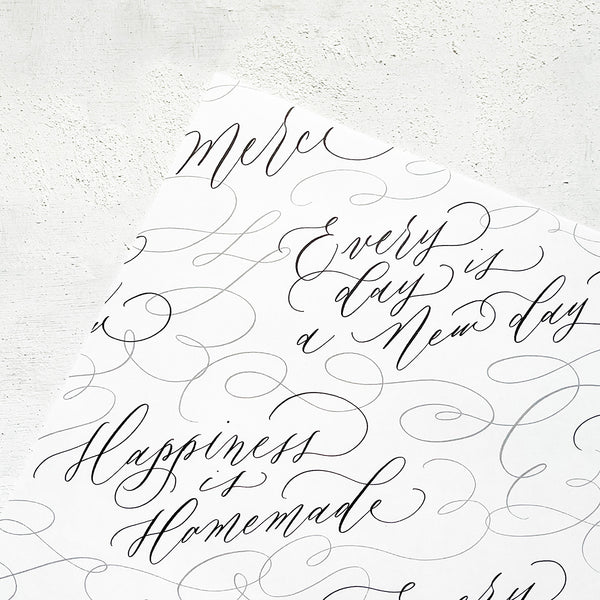 merci
Every is
day
a New day
Happiness
is
Homemade
Every